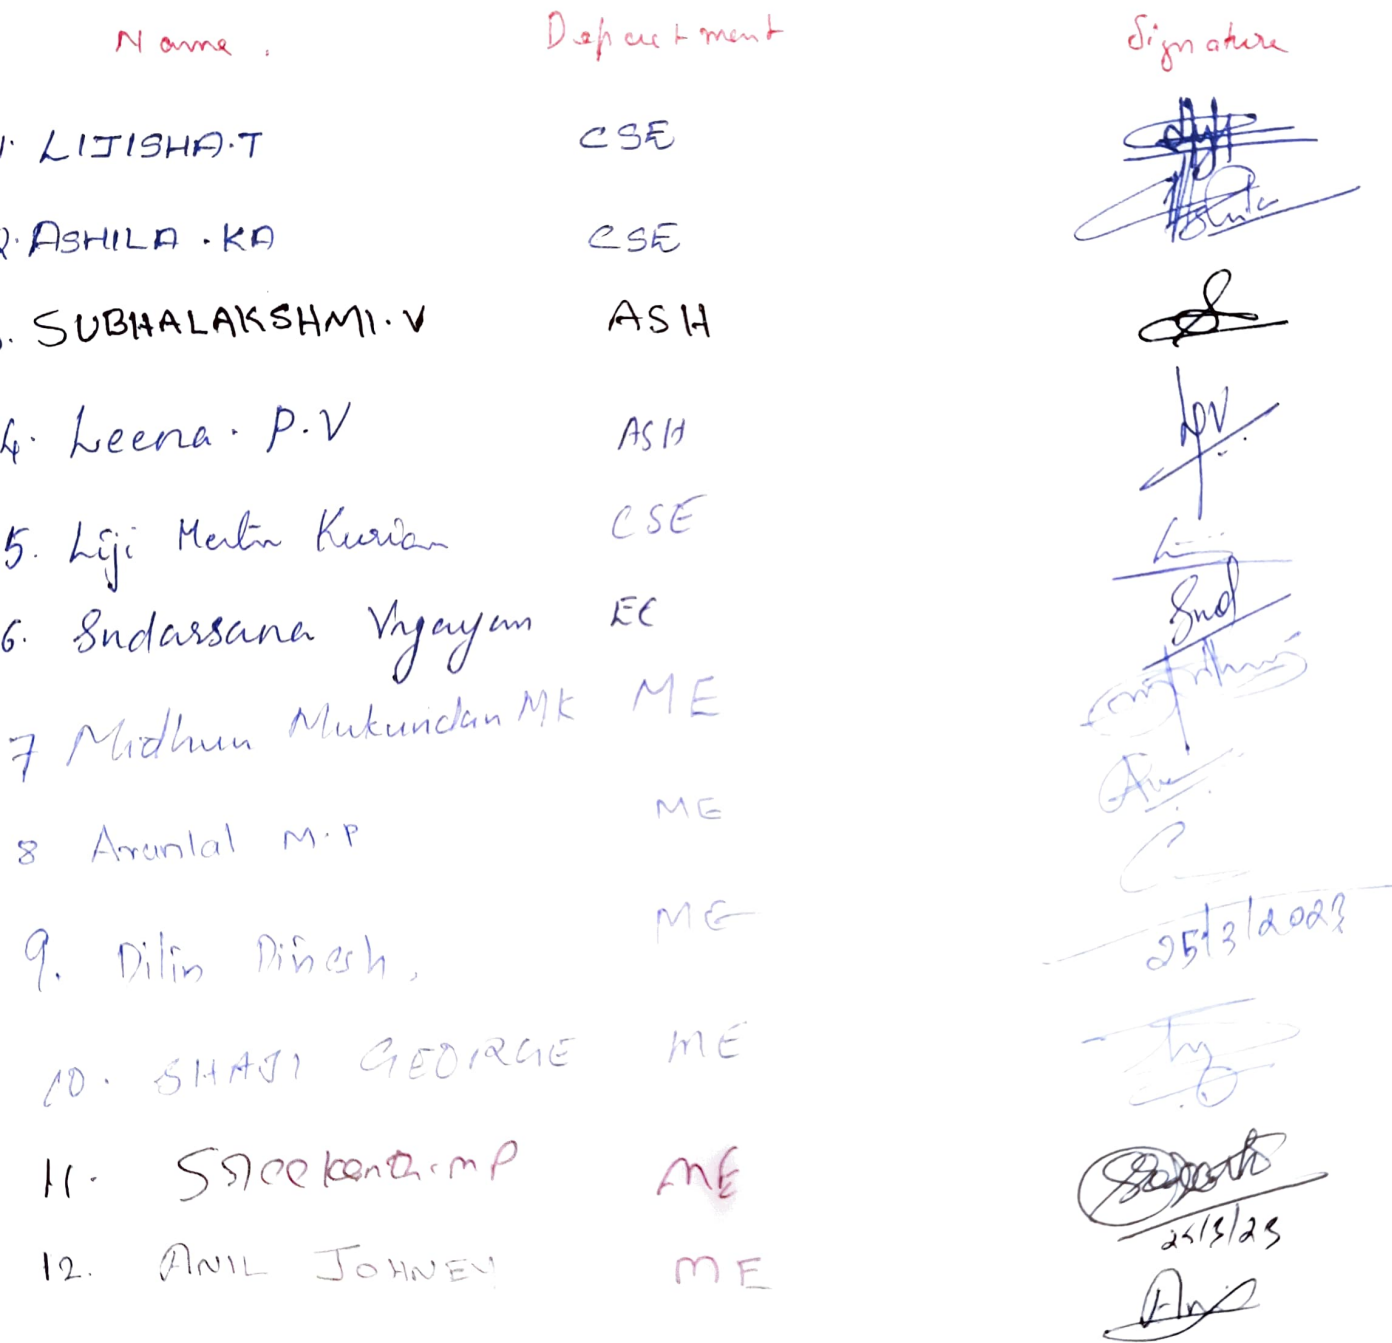 Name . Department Signature
1. LIJISHA.T CSE
2. ASHILA . KA CSE
3. SUBHALAKSHMI. V ASH
4. Leena . P.V ASH
5. Liji Kurian CSE
6. Sudarsana Vijayan EC
7 Midhun Mukundan MK ME
8 Arunlal M.P ME
9. Dilin Dinesh, ME 25/3/2023
10. SHAJI GEORGE ME
11. Sreekanth.mp ME
25/3/23
12. ANIL JOHNEY ME